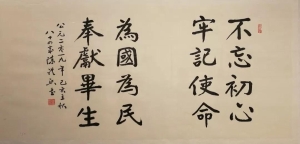 不忘初心
牢記使命
為國為民
奉獻畢生
公元二零一九年己亥立秋
八十八歲